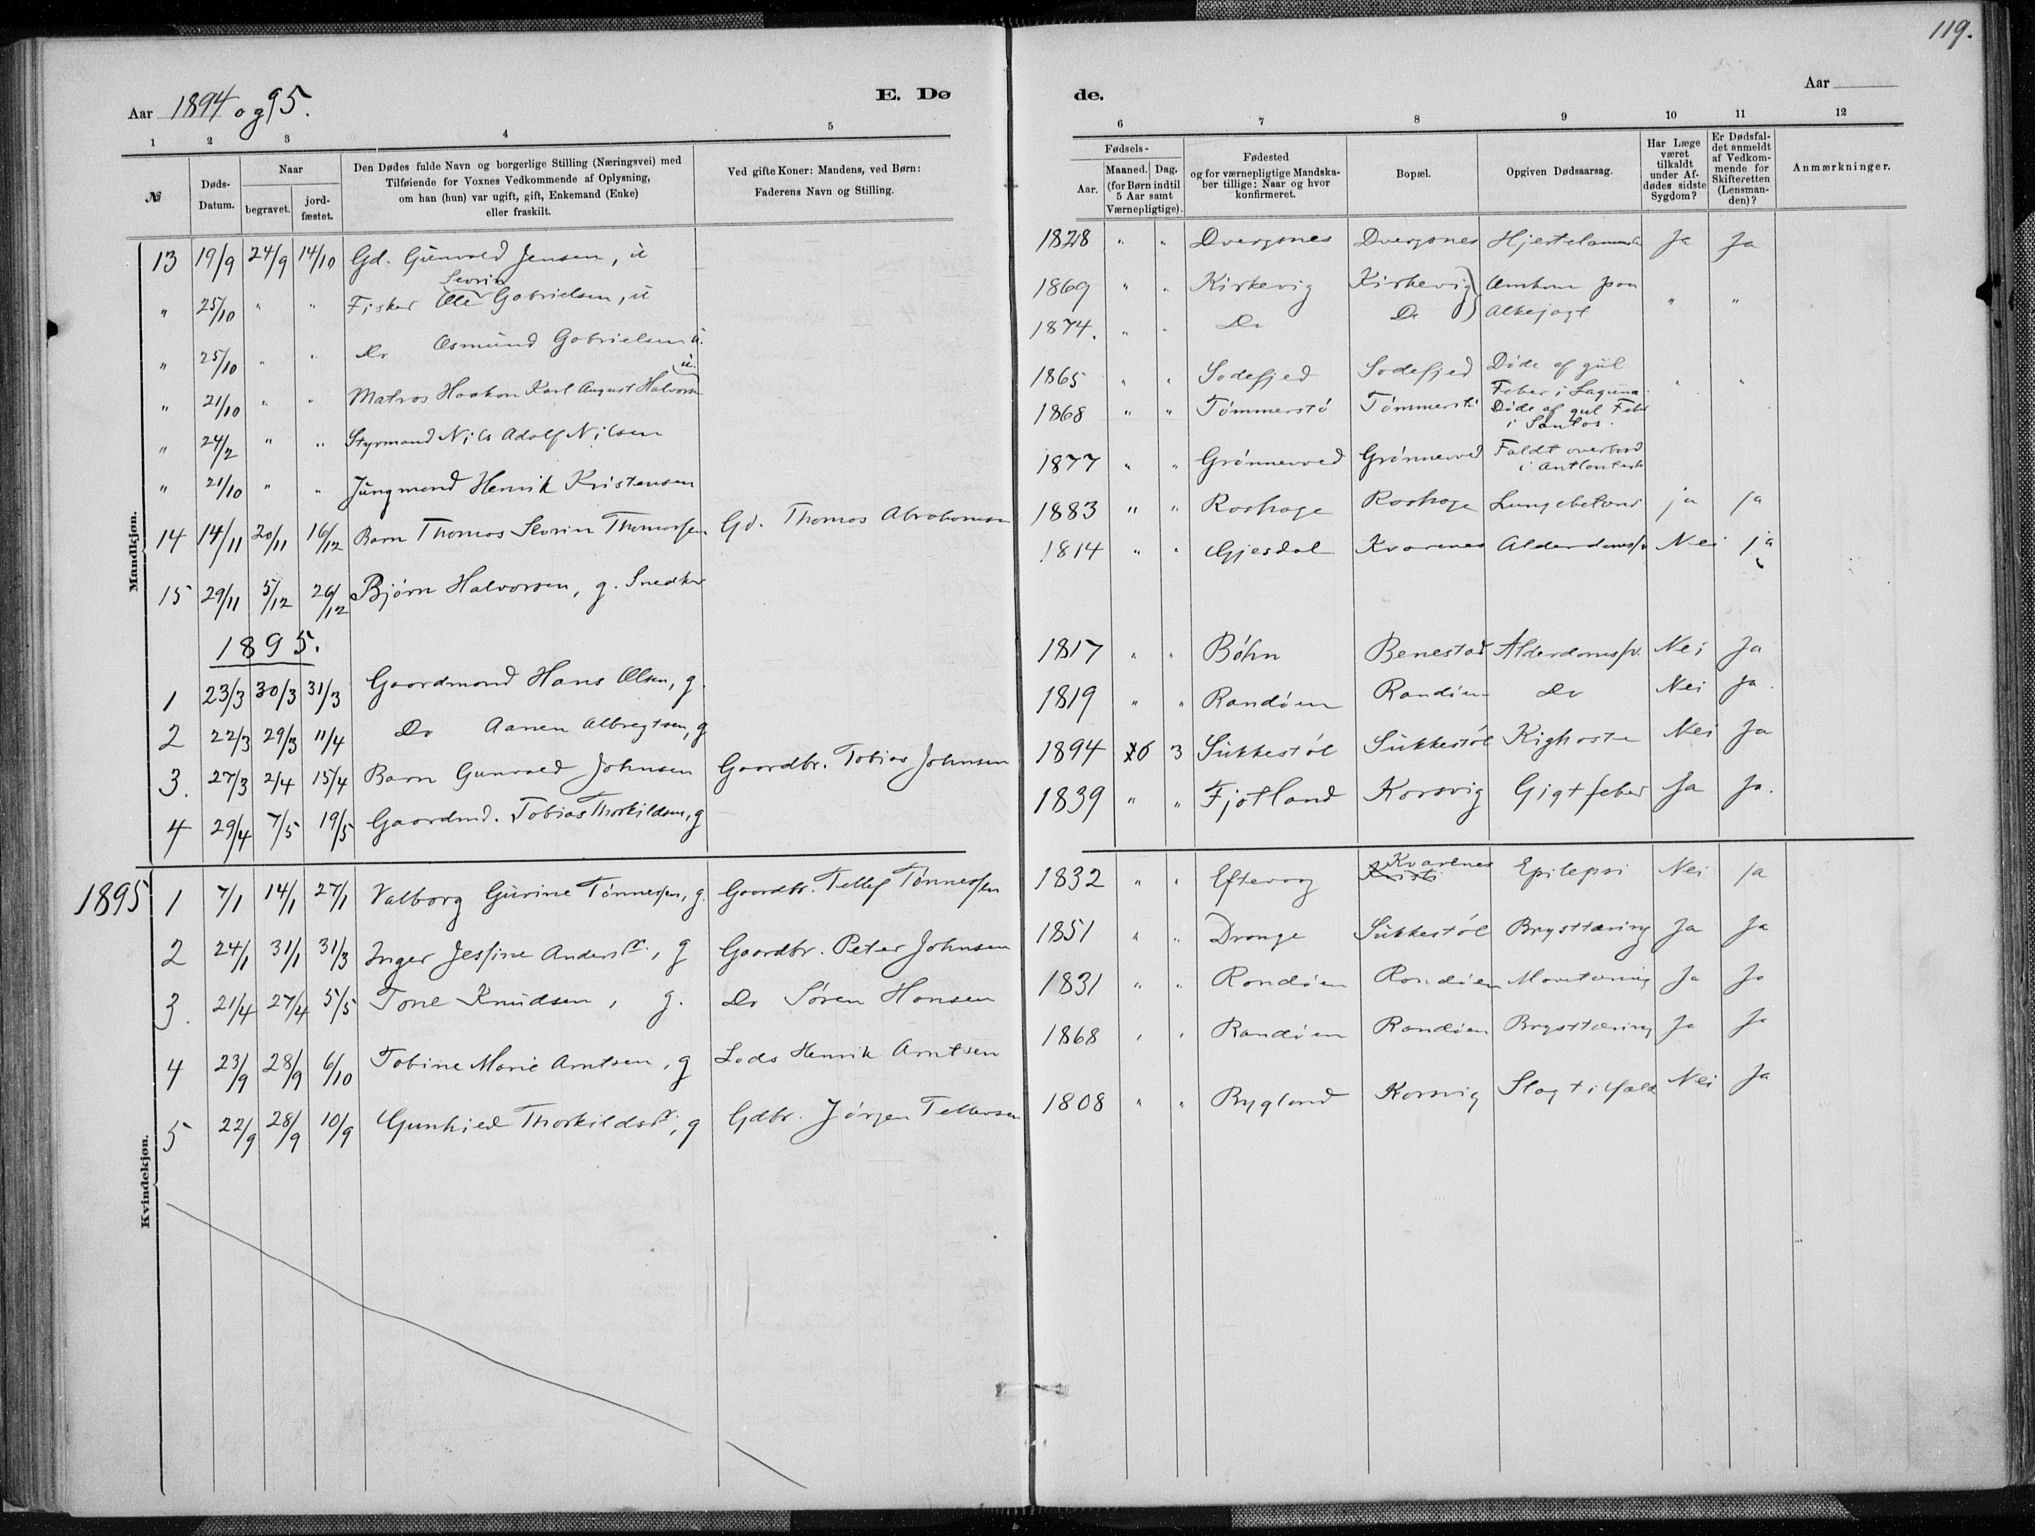 119.
Aar 1894 og 95.
E. Dø
de.
Aar
1 2 3 4 5 6 7 8 9 10 11 12
№
Døds-
Datum.
Naar
begravet.
jord-
fæstet.
Den Dødes fulde Navn og borgerlige Stilling (Næringsvei) med
Tilføiende for Voxnes Vedkommende af Oplysning,
om han (hun) var ugift, gift, Enkemand (Enke)
eller fraskilt.
Ved gifte Koner: Mandens, ved Børn:
Faderens Navn og Stilling.
Fødsels-
Aar.
Maaned. Dag.
(for Børn indtil
5 Aar samt
Værnepligtige).
Fødested
og for værnepligtige Mandska-
ber tillige: Naar og hvor
konfirmeret.
Bopæl.
Opgiven Dødsaarsag.
Har Læge
været
tilkaldt
under Af-
dødes sidste
Sygdom?
Er Dødsfal-
det anmeldt
af Vedkom-
mende for
Skifteretten
(Lensman-
den)?
Anmærkninger.
Mandkjøn.
13 19/9 24/9 14/10 Gd. Gunvald Jensen, u 1828 " " Dvergsnes Dvergsnes Ja Ja
Sevrin
" 25/10 " " Fisker Ole Gabrielsen, u 1869 " " Kirkevig Kirkevig Omkom paa " "
" 25/10 " " Do Osmund Gabrielsen u. 1874. " " Do Do Alkejagt
" 21/10 " " Matros Haakon Karl August Halvorsen u. 1865 " " Sodefjed Sodefjed Døde af gul
Feber i Laguna. " "
" 24/2 " " Styrmand Nils Adolf Nilsen 1868 " " Tømmerstø Tømmerstø Døde af gul Feber
i Santos.
" 21/10 " " Jungmand Henrik Kristensen 1877 " " Grønnevved Grønnevved Faldt overbord
i
14 14/11 20/11 16/12 Barn Thomas Sevrin Thomassen Gd. Thomas Abrahamsen 1883 " " Roshage Roshage ja ja
15 29/11 5/12 26/12 Bjørn Halvorsen, g. Snedker 1814 " " Gjesdal Kvarenes Alderdomssv. Nei ja
1895.
1 23/3 30/3 31/3 Gaardmand Hans Olsen, g. 1817 " " Bøhn Benestad Alderdomssv. Nei Ja
2 22/3 29/3 11/4 Do Aanen Albregtsen, g 1819 " " Randøen Randøen Do Nei Ja.
3. 27/3 2/4 15/4 Barn Gunvald Johnsen Gaardbr. Tobias Johnsen 1894 6 3 Sukkestøl Sukkestøl Kighoste Nei Ja
4 29/4 7/5 19/5 Gaardmd. Tobias Thorkildsen, g 1839 " " Fjotland Korsvig Gigtfeber Ja Ja.
Kvindekjøn.
Kvarenes
1895 1 7/1 14/1 27/1 Valborg Gurine Tønnessen, g. Gaardbr. Tellef Tønnessen 1832 " " Eftevog Epilepsi Nei Ja
2 24/1 31/1 31/3 Inger Jessine Andersdtr., g Gaardbr. Peter Johnsen 1851 " " Drange Sukkestøl Brysttæring Ja Ja
3. 21/4 27/4 5/5 Tone Knudsen, g. Do Søren Hansen 1831 " " Randøen Randøen Mavetæring Ja Ja
4 23/9 28/9 6/10 Tobine Marie Arntsen, g Lods Henrik Arntsen 1868 " " Randøen Randøen Brysttæring Ja Ja
5 22/9 28/9 10/9 Gunhild Thorkildsdtr., g Gdbr. Jørgen Tellevsen 1808 " " Bygland Korsvig Slagtilfæld Nei Ja